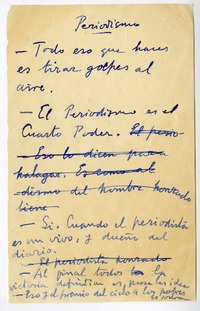 Periodismo
— Todo eso que haces
es tirar golpes al
aire.
— El Periodismo es el
Cuarto Poder. El perio-
— Eso lo dicen para
halagar. Es como al
dismo del hombre honrado
tiene
— Si. Cuando el periodista
es un vivo, y dueño del
diario.
— El periodista honrado
— Al final todos la
victoria
— Eso y el premio del cielo a los pobres